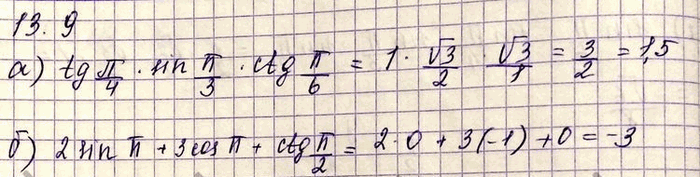 13. 9
а) tg π/4 · sin π/3 · ctg π/6 = 1 · √3/2 · √3/1 = 3/2 = 1,5
б) 2 sin π + 3 cos π + ctg π/2 = 2·0 + 3(-1) + 0 = -3